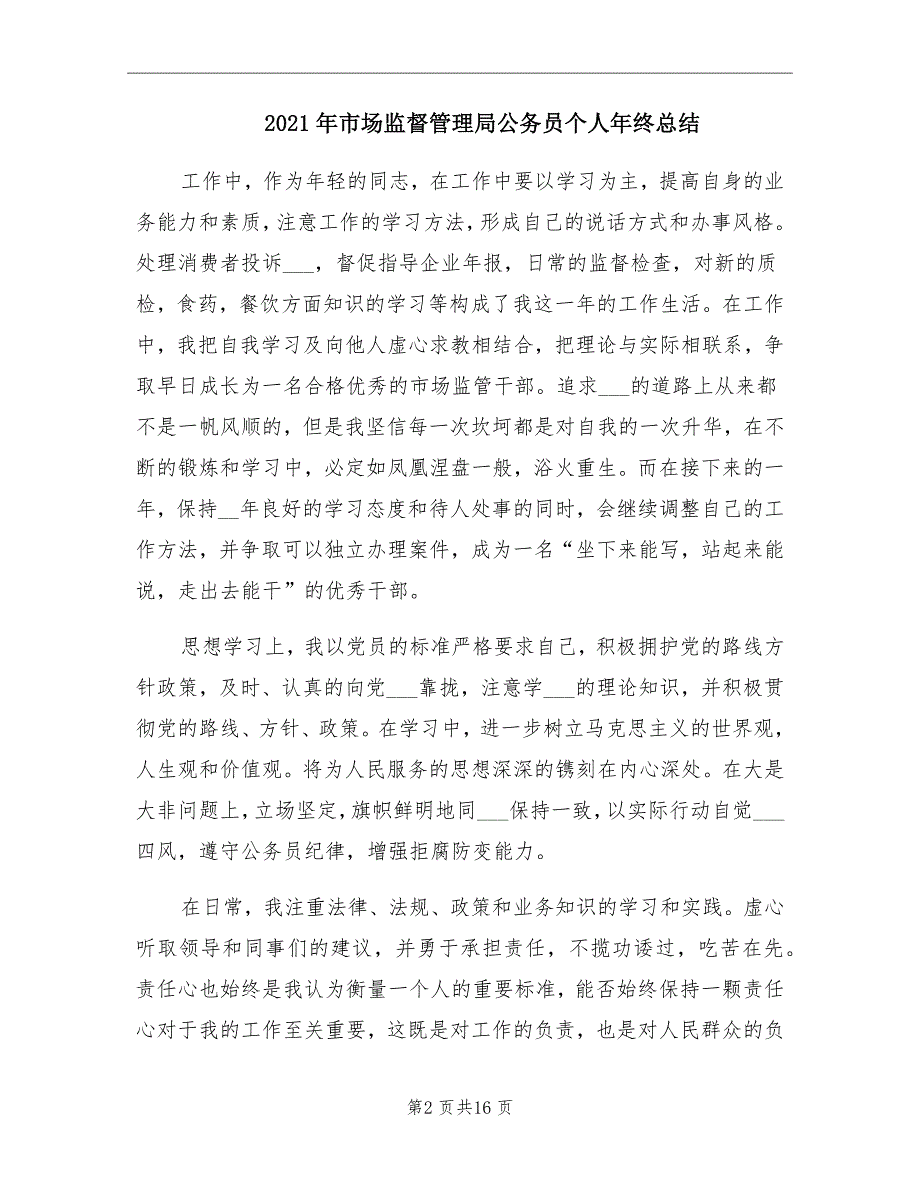 2021 年市场监督管理局公务员个人年终总结
工作中，作为年轻的同志，在工作中要以学习为主，提高自身的业
务能力和素质，注意工作的学习方法，形成自己的说话方式和办事风格。
处理消费者投诉___，督促指导企业年报，日常的监督检查，对新的质
检，食药，餐饮方面知识的学习等构成了我这一年的工作生活。在工作
中，我把自我学习及向他人虚心求教相结合，把理论与实际相联系，争
取早日成长为一名合格优秀的市场监管干部。追求___的道路上从来都
不是一帆风顺的，但是我坚信每一次坎坷都是对自我的一次升华，在不
断的锻炼和学习中，必定如凤凰涅盘一般，浴火重生。而在接下来的一
年，保持__年良好的学习态度和待人处事的同时，会继续调整自己的工
作方法，并争取可以独立办理案件，成为一名“坐下来能写，站起来能
说，走出去能干”的优秀干部。
思想学习上，我以党员的标准严格要求自己，积极拥护党的路线方
针政策，及时、认真的向党___靠拢，注意学___的理论知识，并积极贯
彻党的路线、方针、政策。在学习中，进一步树立马克思主义的世界观，
人生观和价值观。将为人民服务的思想深深的镌刻在内心深处。在大是
大非问题上，立场坚定，旗帜鲜明地同___保持一致，以实际行动自觉___
四风，遵守公务员纪律，增强拒腐防变能力。
在日常，我注重法律、法规、政策和业务知识的学习和实践。虚心
听取领导和同事们的建议，并勇于承担责任，不揽功诿过，吃苦在先。
责任心也始终是我认为衡量一个人的重要标准，能否始终保持一颗责任
心对于我的工作至关重要，这既是对工作的负责，也是对人民群众的负
第2 页共16 页